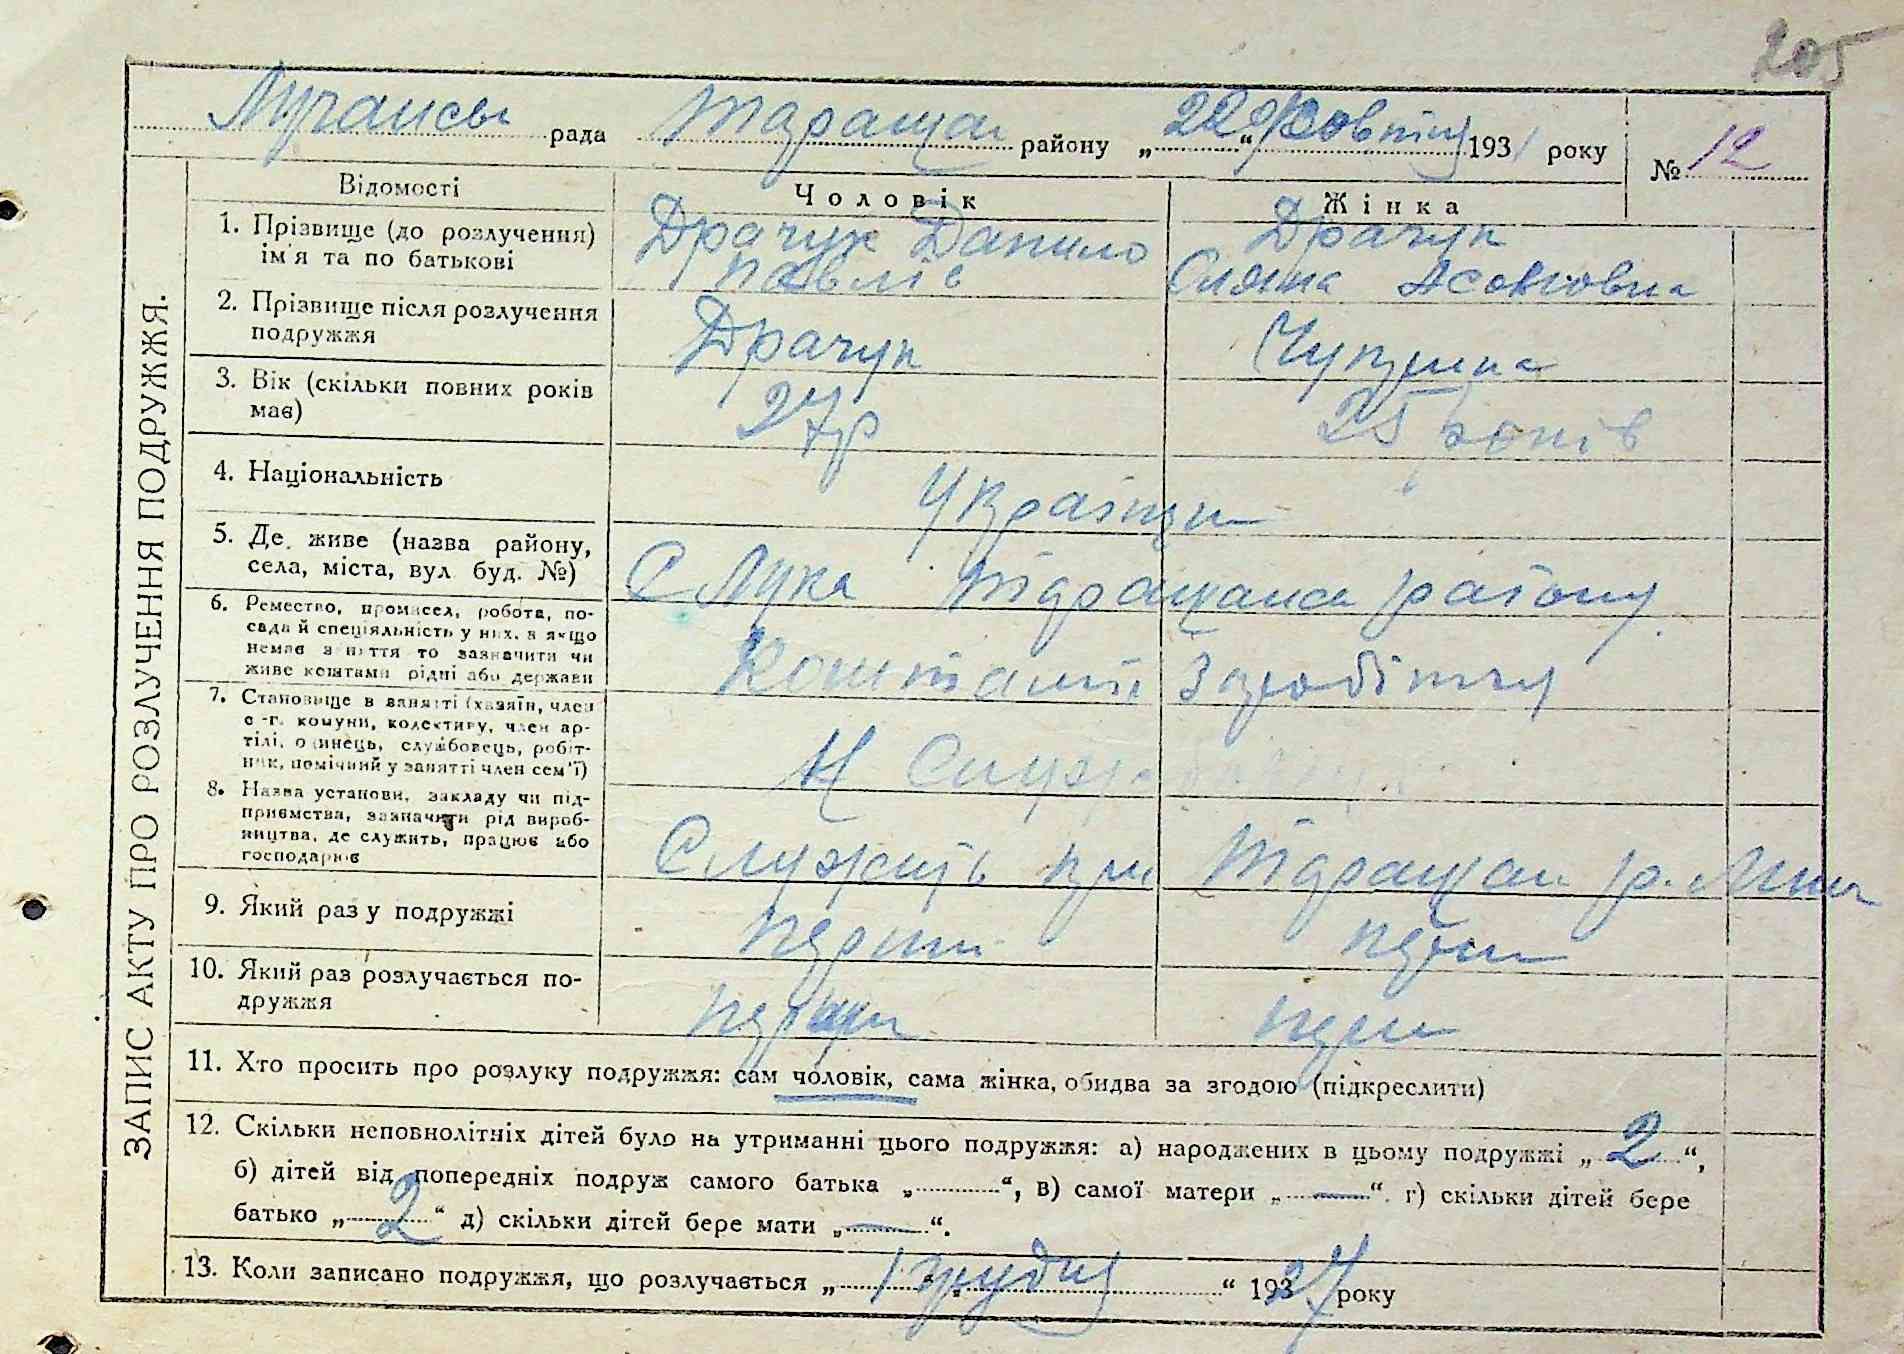 205
Лучансь рада Таращан району „22“ Жовтня 1931 року № 12
ЗАПИС АКТУ ПРО РОЗЛУЧЕННЯ ПОДРУЖЖЯ.
Відомості Чоловік Жінка
1. Прізвище (до розлучення) ім'я та по батькові
Драчук Данило
Павлів
Драчук
2. Прізвище після розлучення подружжя
Драчук
3. Вік (скільки повних років має)
27 р
25 років
4. Національність
Українци
5. Де живе (назва району, села, міста, вул буд. №)
С Лука Таращанськ району
6. Ремество, промисел, робота, посада й спеціяльність у них, а якщо немає заняття то зазначити чи живе коштами рідні або держави
Коштами Заробітку
7. Становище в занятті (хазяїн, член с-г. комуни, колективу, член артілі, одинець, службовець, робітник, помічний у занятті член сем'ї)
8. Назва установи, закладу чи підприємства, зазначити рід виробництва, де служить, працює або господарює
Служить при Таращан р.
9. Який раз у подружжі
перший
перши
10. Який раз розлучається подружжя
перши
перш
11. Хто просить про розлуку подружжя: сам чоловік, сама жінка, обидва за згодою (підкреслити)
12. Скільки неповнолітніх дітей було на утриманні цього подружжя: а) народжених в цьому подружжі „ 2 “,
б) дітей від попередніх подруж самого батька „..........“, в) самої матери „ — “. г) скільки дітей бере
батько „ 2 “ д) скільки дітей бере мати „ — “.
13. Коли записано подружжя, що розлучається „ 1 грудня “ 1927 року